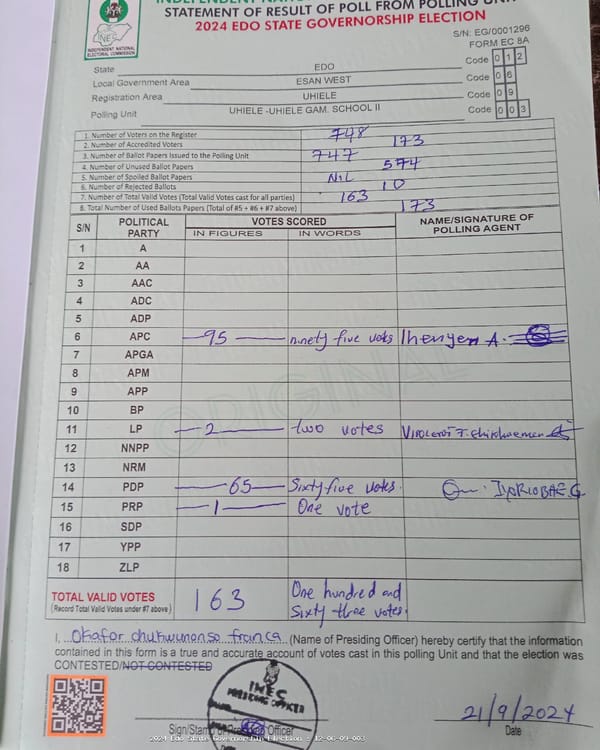 STATEMENT OF RESULT OF POLL FROM POLLING UNIT
2024 EDO STATE GOVERNORSHIP ELECTION
S/N: EG/0001296
FORM EC 8A
INEC
INDEPENDENT NATIONAL
ELECTORAL COMMISSION
State EDO Code 0 1 2
Local Government Area ESAN WEST Code 0 6
Registration Area UHIELE Code 0 9
Polling Unit UHIELE -UHIELE GAM. SCHOOL II Code 0 0 3
1. Number of Voters on the Register 748
2. Number of Accredited Voters 173
3. Number of Ballot Papers Issued to the Polling Unit 747
4. Number of Unused Ballot Papers 574
5. Number of Spoiled Ballot Papers NIL
6. Number of Rejected Ballots 10
7. Number of Total Valid Votes (Total Valid Votes cast for all parties) 163
8. Total Number of Used Ballots Papers (Total of #5 + #6 + #7 above) 173
S/N POLITICAL PARTY VOTES SCORED NAME/SIGNATURE OF POLLING AGENT
IN FIGURES IN WORDS
1 A
2 AA
3 AAC
4 ADC
5 ADP
6 APC 95 ninety five votes Ihenyen A.
7 APGA
8 APM
9 APP
10 BP
11 LP 2 two votes
12 NNPP
13 NRM
14 PDP 65 Sixty five votes.
15 PRP 1 One vote
16 SDP
17 YPP
18 ZLP
ORIGINAL
TOTAL VALID VOTES 163 One hundred and
(Record Total Valid Votes under #7 above) Sixty three votes.
I, Okafor chukwunonso franca (Name of Presiding Officer) hereby certify that the information
contained in this form is a true and accurate account of votes cast in this polling Unit and that the election was
CONTESTED/NOT CONTESTED
INEC
PRESIDING OFFICER
21/9/2024
Sign/Stamp of Presiding Officer Date
2024 Edo State Governorship Election - 12-06-09-003